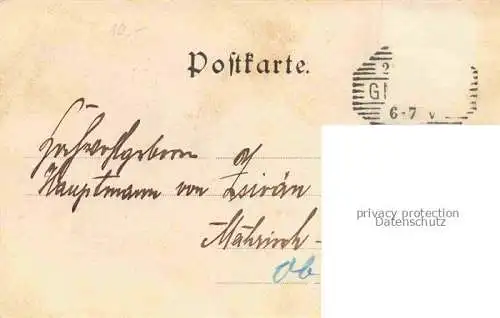 10.-
Postkarte.
2
G
6-7 V
Hochwohlgeboren
Hauptmann von
Mährisch-
Ob
privacy protection
Datenschutz